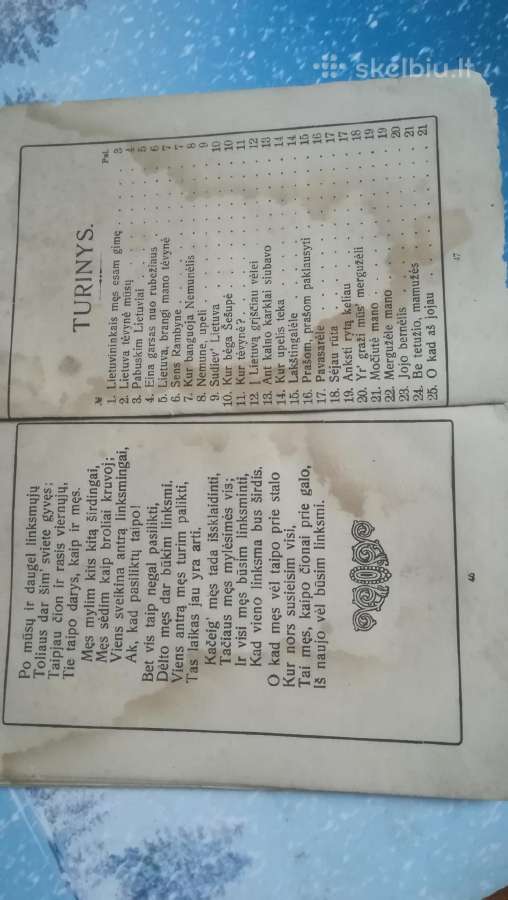 skelbiu.lt
Po mūsų ir daugel linksmųjų
Toliaus dar šim' sviete gyvęs;
Taipjau čion ir rasis viernųjų,
Tie taipo darys, kaip ir męs.
Męs mylim kiis kitą širdingai,
Męs sėdim kaip broliai kruvoj;
Viens sveikina antrą linksmingai,
Ak, kad pasiliktų taipo!
Bet vis taip negal pasilikti,
Dėlto męs dar būkim linksmi.
Viens antrą męs turim palikti,
Tas laikas jau yra arti.
Kačeig' męs tada išsklaidinti,
Tačiaus męs mylėsimės vis;
Ir visi męs būsim linksminti,
Kad vieno linksma bus širdis.
O kad męs vėl taipo prie stalo
Kur nors susieisim visi,
Tai męs, kaipo čionai prie galo,
Iš naujo vėl būsim linksmi.
46
TURINYS.
№ Pal.
1. Lietuvininkais męs esam gimę 3
2. Lietuva tėvynė mūsų 4
3. Pabuskim Lietuviai 5
4. Eina garsas nuo rubežiaus 6
5. Lietuva, brangi mano tėvynė 7
6. Sens Rambyne 7
7. Kur banguoja Nemunėlis 8
8. Nemune, upeli 9
9. Sudiev' Lietuva 10
10. Kur bėga Šešupė 10
11. Kur tėvynė? 11
12. Į Lietuvą grįščiau vėlei 12
13. Ant kalno karklai siubavo 13
14. Kur upelis teka 14
15. Lakštingalėle 14
16. Prašom, prašom paklausyti 15
17. Pavasarėle 16
18. Sėjau rūta 17
19. Anksti rytą kėliau 17
20. Yr' graži mūs' mergužėli 18
21. Močiutė mano 19
22. Mergužėle mano 19
23. Jojo bernėlis 20
24. Be tetužio, mamužės 21
25. O kad aš jojau 21
47